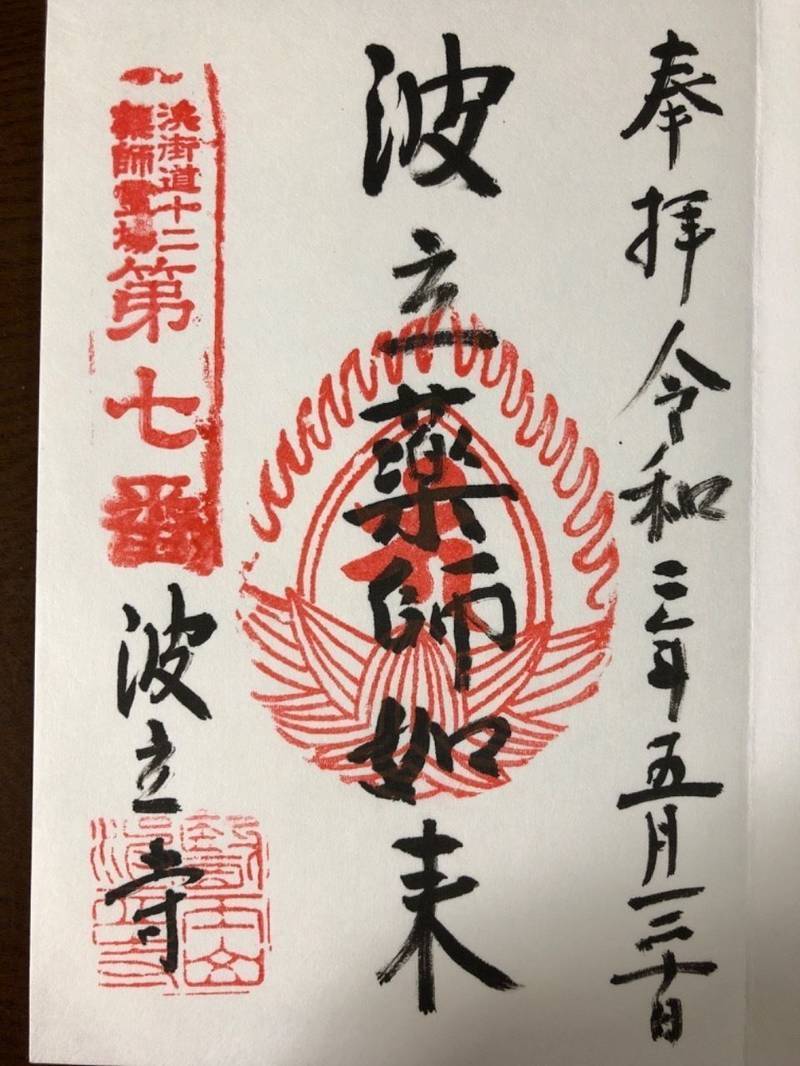 奉拝 令和三年五月三十日
波立薬師如来
浜街道十二
薬師霊場
第七番
波立寺